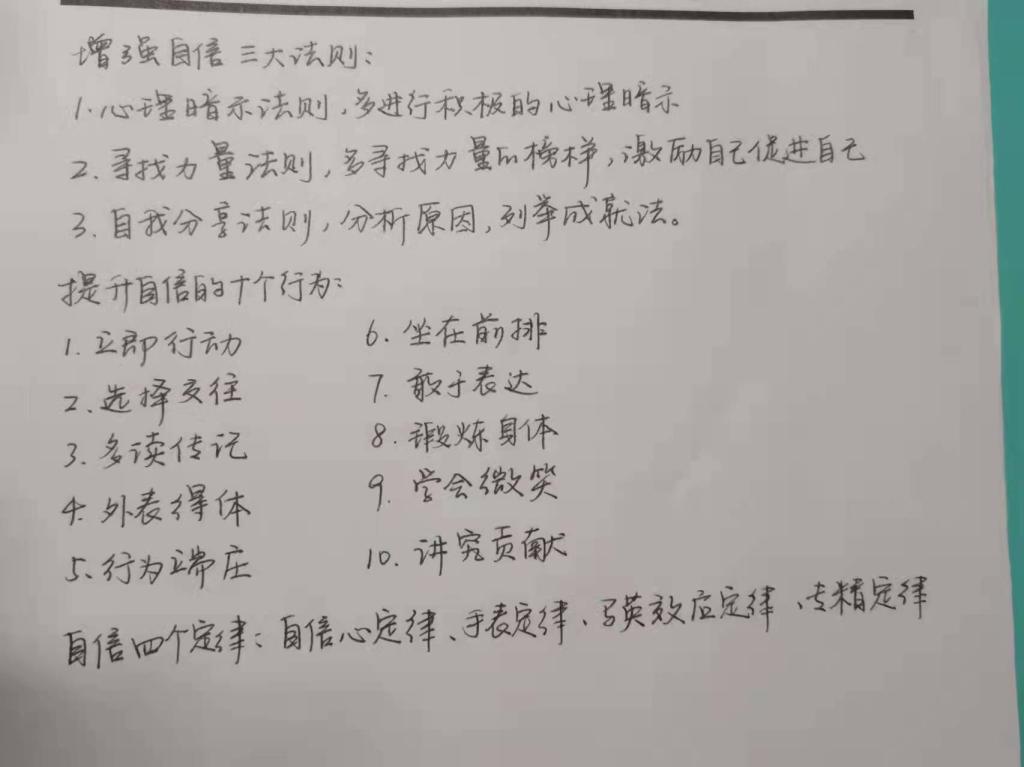 增强自信三大法则：
1.心理暗示法则，多进行积极的心理暗示
2.寻找力量法则，多寻找力量的榜样，激励自己促进自己
3.自我分享法则，分析原因，列举成就法。
提升自信的十个行为：
1.立即行动
2.选择交往
3.多读传记
4.外表得体
5.行为端庄
6.坐在前排
7.敢于表达
8.锻炼身体
9.学会微笑
10.讲究贡献
自信四个定律：自信心定律、手表定律、马英效应定律、专精定律